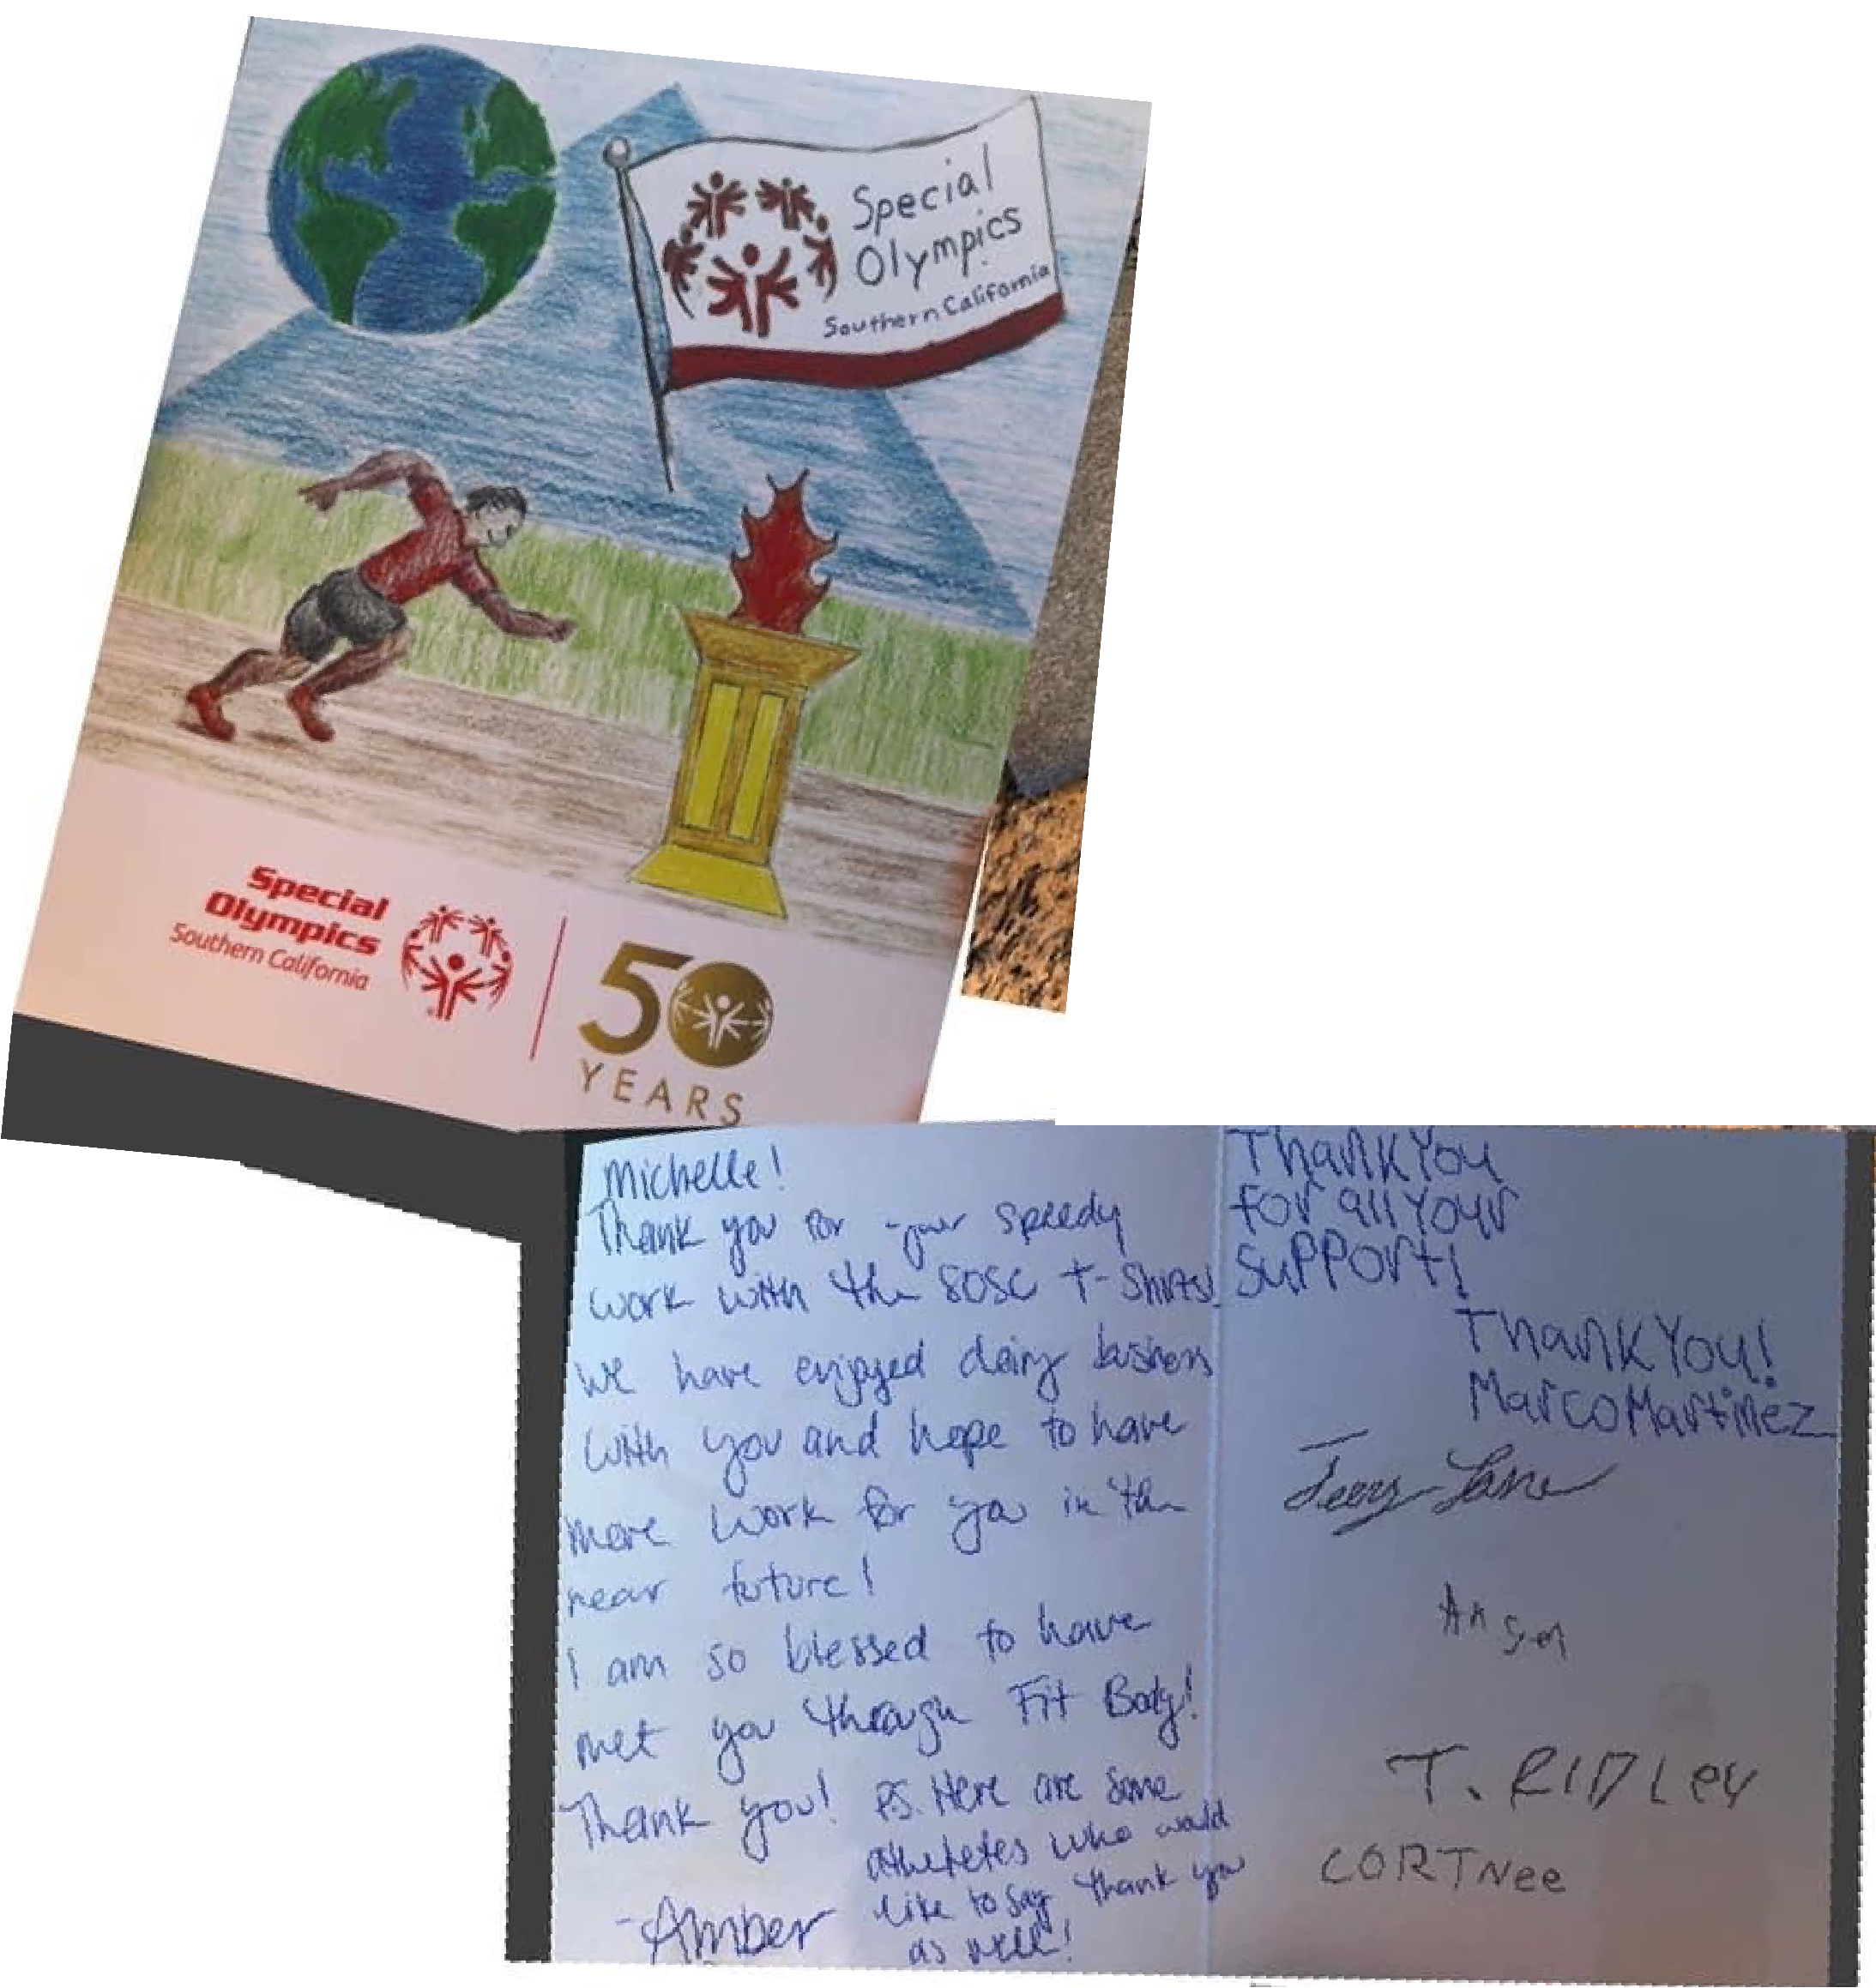 Special
Olympics
Southern California
Special
Olympics
Southern California
50
YEARS
Michelle!
Thank you for your speedy
work with the SOSC T-Shirts!
We have enjoyed doing business
with you and hope to have
more work for you in the
near future!
I am so blessed to have
met you through Fit Body!
Thank you!
P.S. Here are some
atheletes who would
like to say thank you
as well!
-Amber
Thank You
for all Your
support!
Thank You!
Marco Martinez
Lane
T. RIDLey
CORTNee